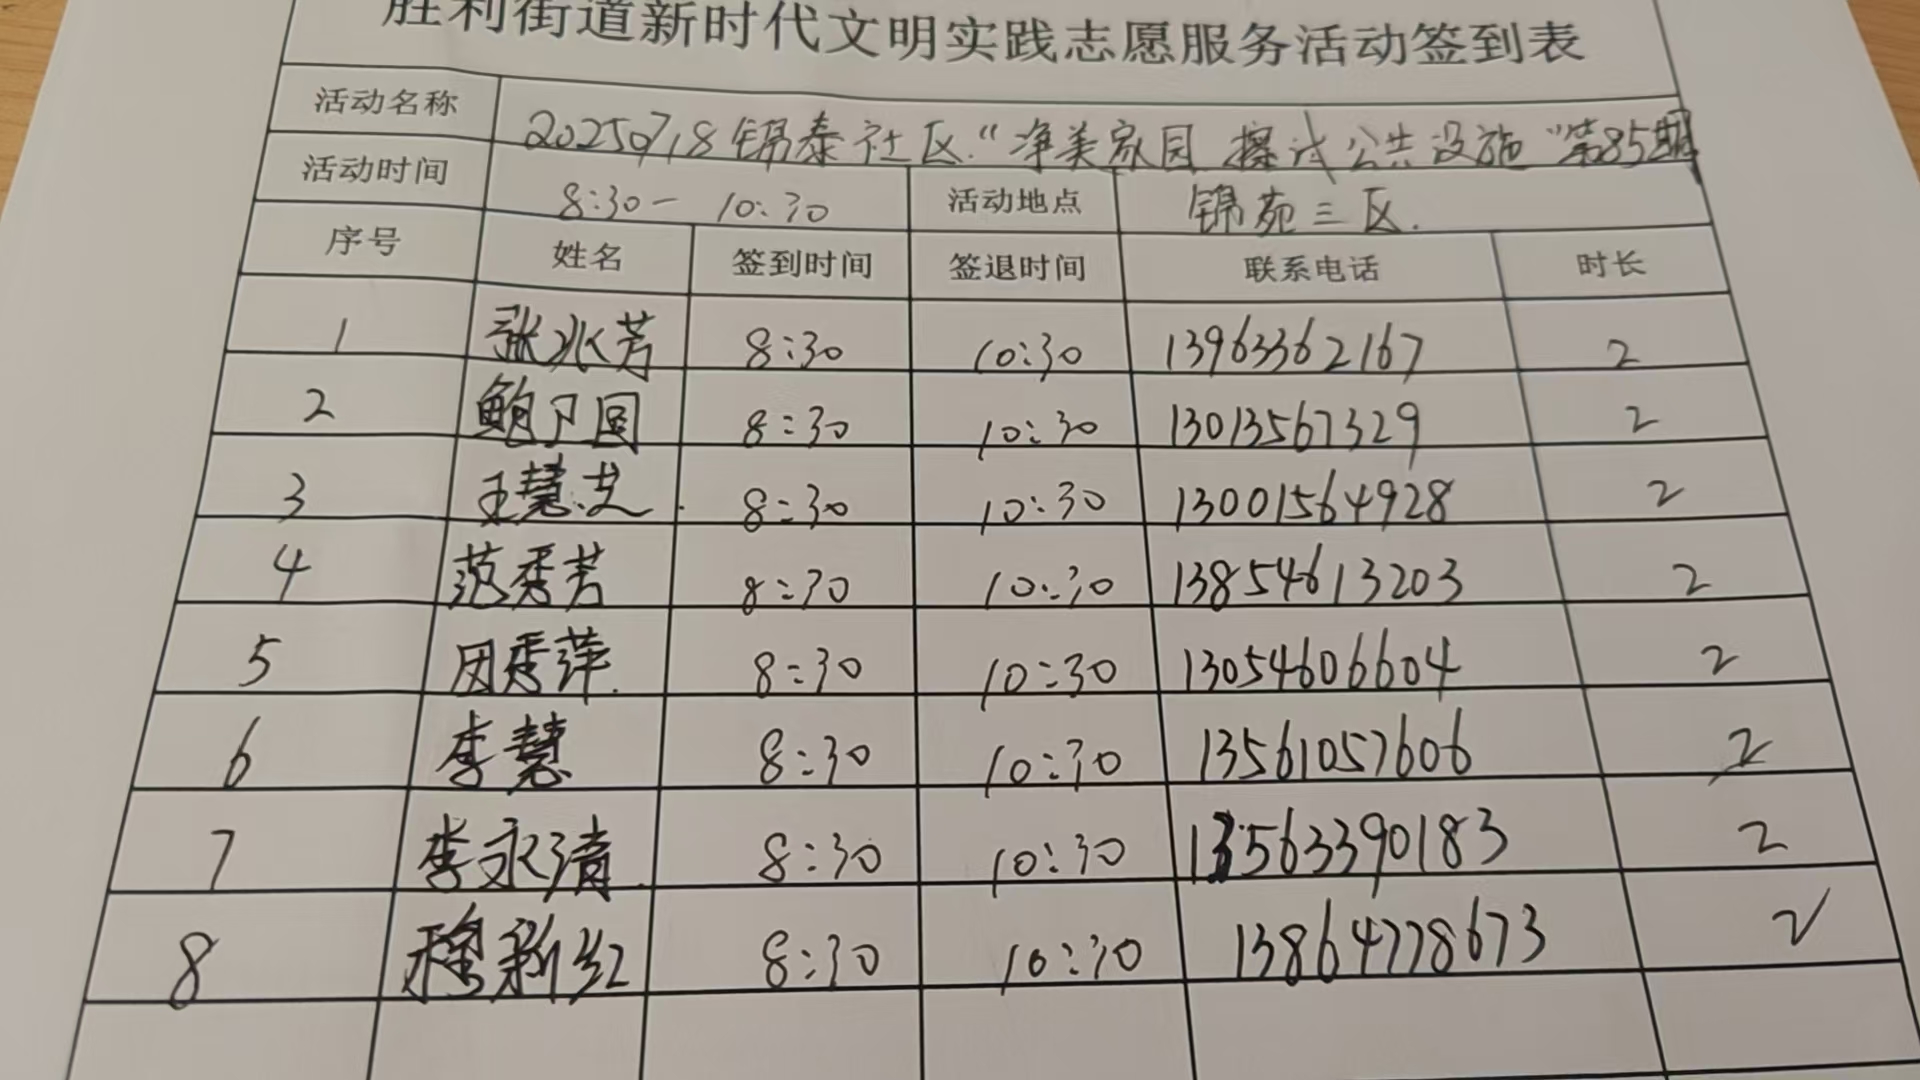 胜利街道新时代文明实践志愿服务活动签到表
活动名称 20250718锦泰社区“净美家园 擦拭公共设施”第85期
活动时间 8:30-10:30 活动地点 锦苑三区.
序号 姓名 签到时间 签退时间 联系电话 时长
1 张冰芳 8:30 10:30 13963362167 2
2 鲍卫国 8:30 10:30 13013567329 2
3 王慧芝 8:30 10:30 13001564928 2
4 范秀芳 8:30 10:30 13854613203 2
5 周秀萍. 8:30 10:30 13054606604 2
6 李慧 8:30 10:30 13561057606 2
7 李永清. 8:30 10:30 13563390183 2
8 新红 8:30 10:30 13864778673 2